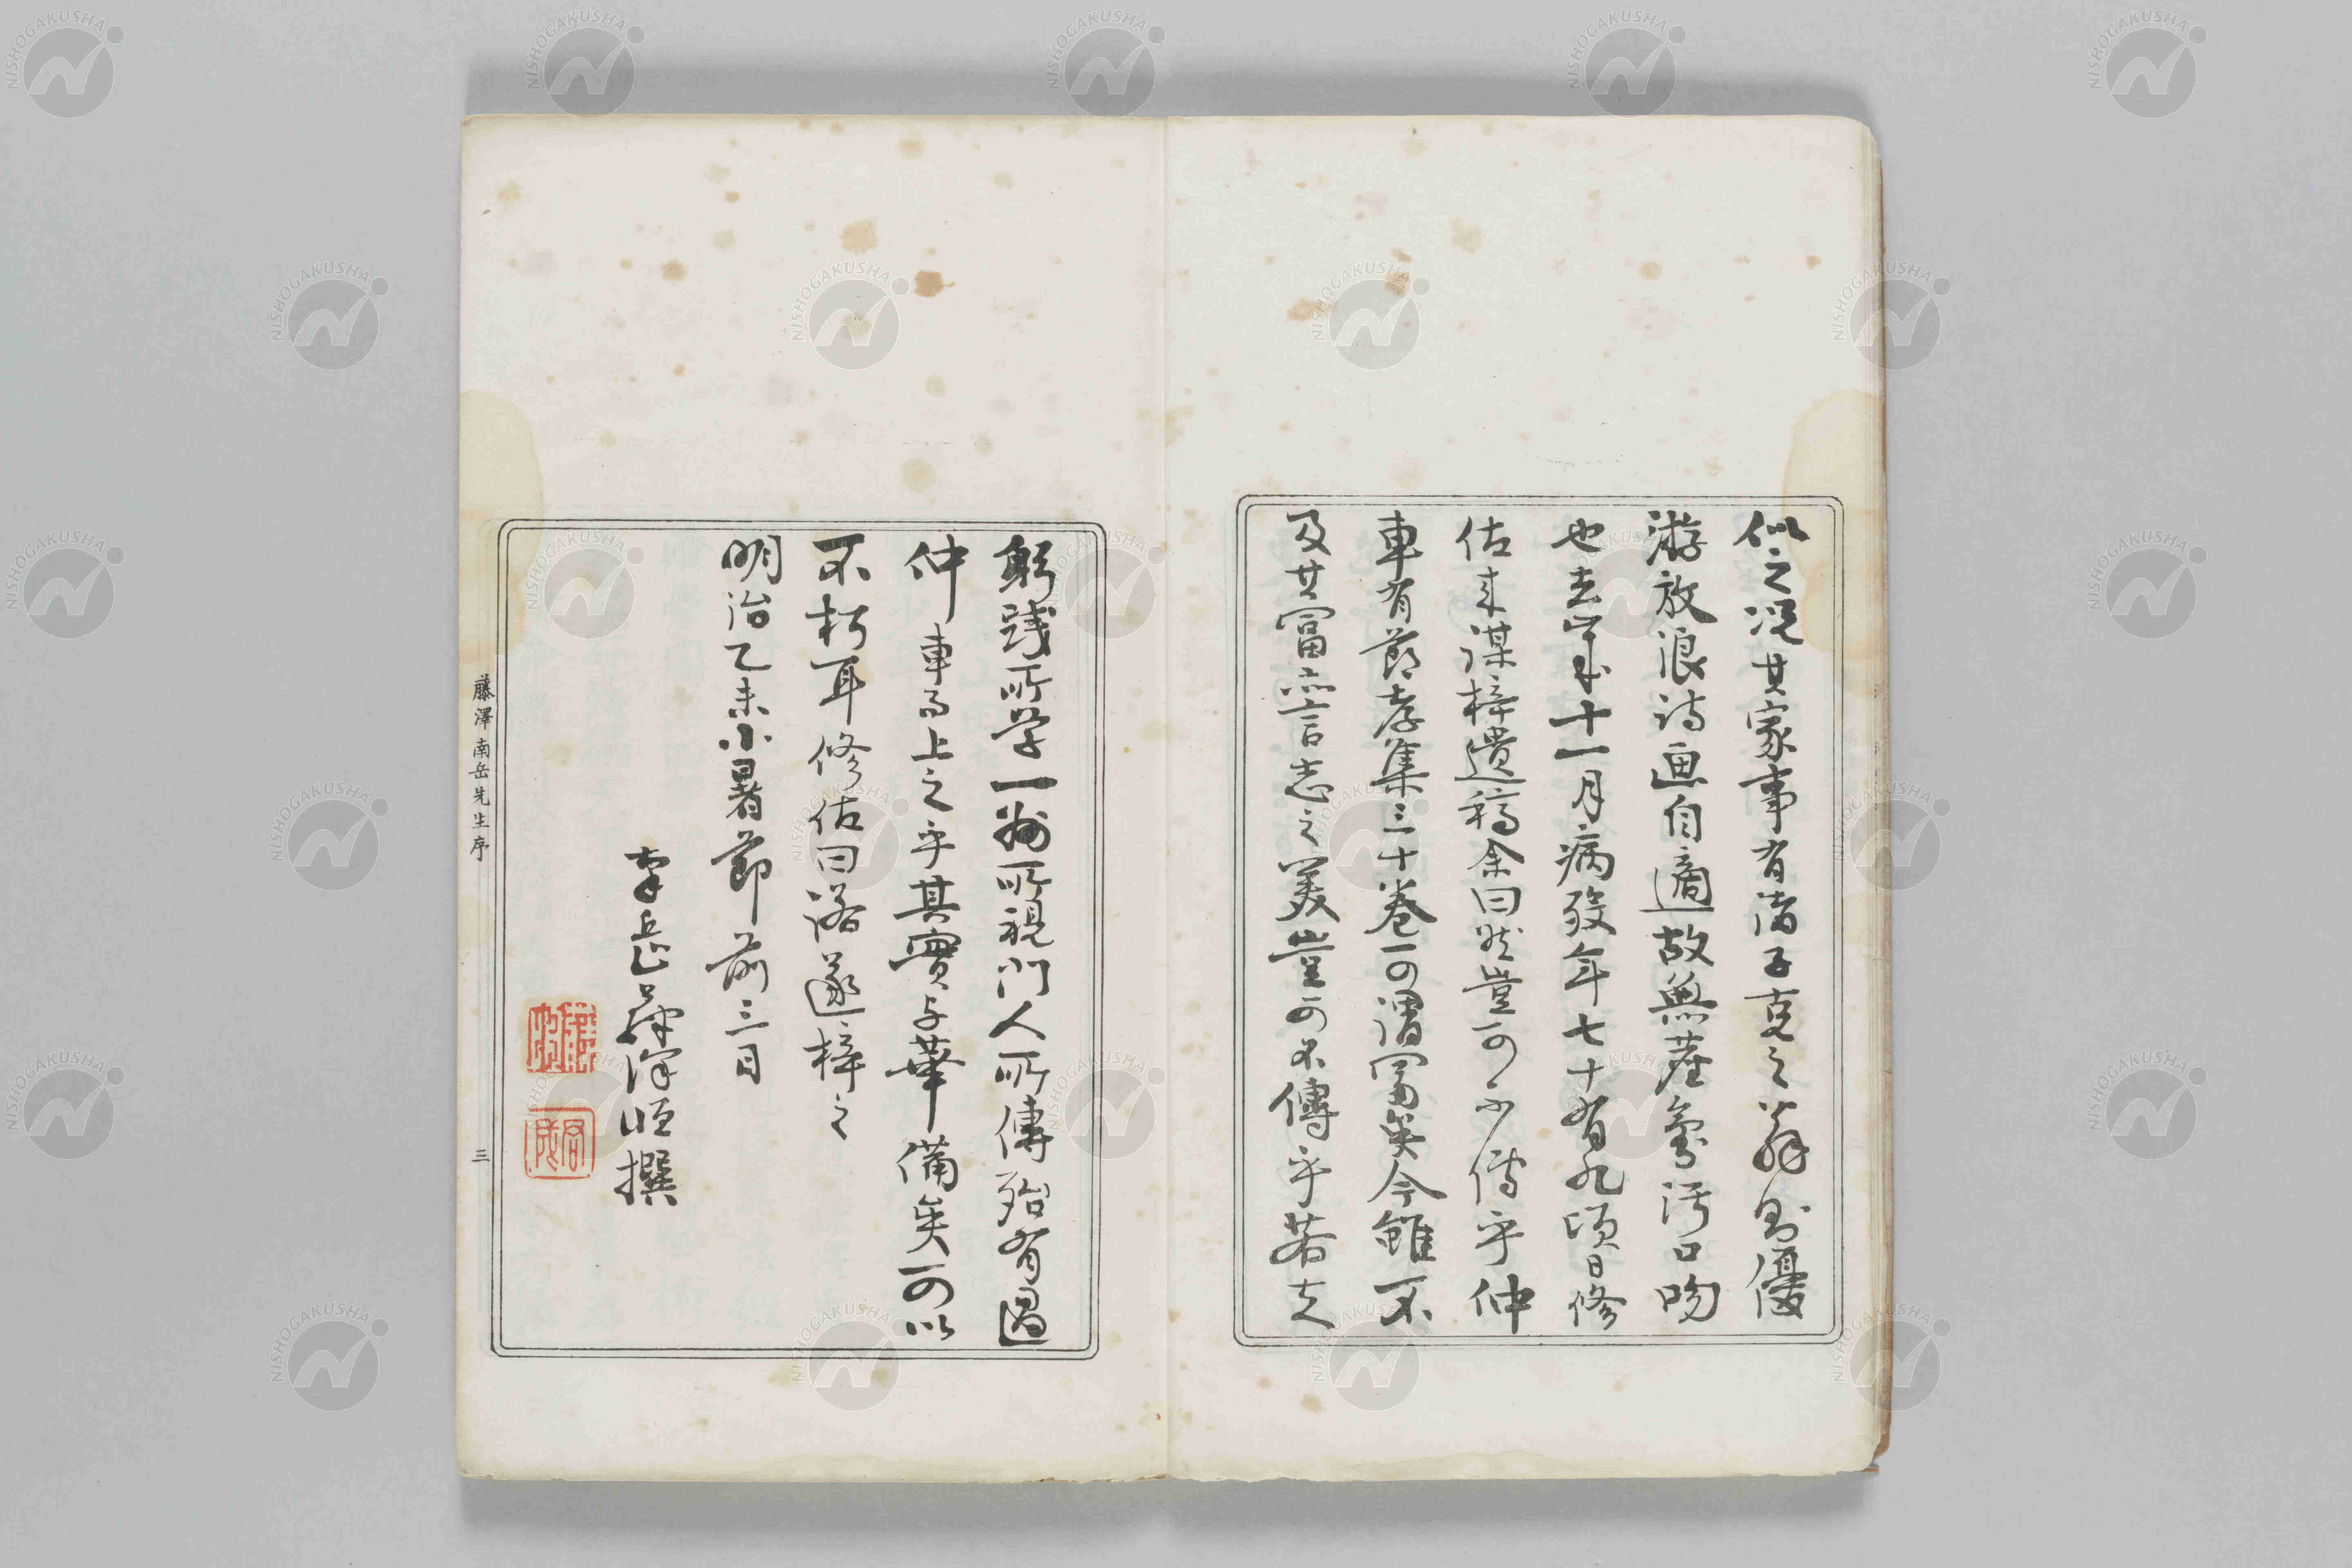 似之況其家事有濤子克之翁則優
游放浪詩画自適故無塵氛汚口吻
也去年十一月病歿年七十有九頃日修
佶来謀梓遺稿余曰然豈可不傳乎仲
車有節孝集三十巻可謂富矣今雖不
及其富而言志之美豈可不傳乎若夫
躬踐所学一郷所視門人所傳殆有過
仲車而上之乎其實与華備矣可以
不朽耳修佶曰諾遂梓之
明治乙未小暑節前三日
南岳藤澤恒撰
藤澤南岳先生序
三
NISHOGAKUSHA